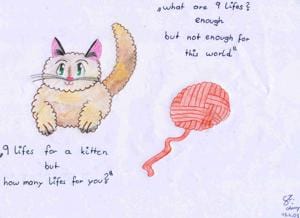 „what are 9 lifes?
enough
but not enough for
this world"
„9 lifes for a kitten
but
how many lifes for you?"